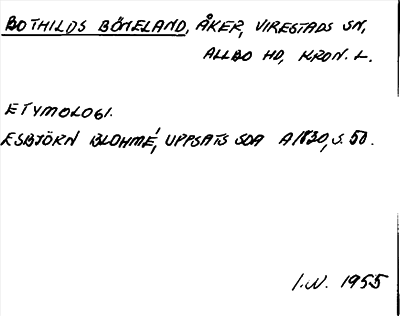 BOTHILDS BÖNELAND, ÅKER, VIRESTADS SN,
ALLBO HD, KRON. L.
ETYMOLOGI.
ESBJÖRN BLOHMÉ, UPPSATS SOA A1830, S. 50.
I.N. 1955